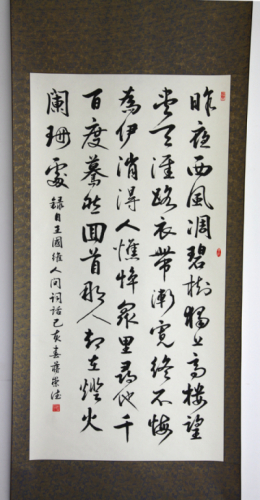 昨夜西風凋碧樹獨上高樓望
盡天涯路衣帶漸寬終不悔
為伊消得人憔悴眾里尋他千
百度驀然回首那人却在燈火
闌珊處 錄自王國維人间詞話己亥春